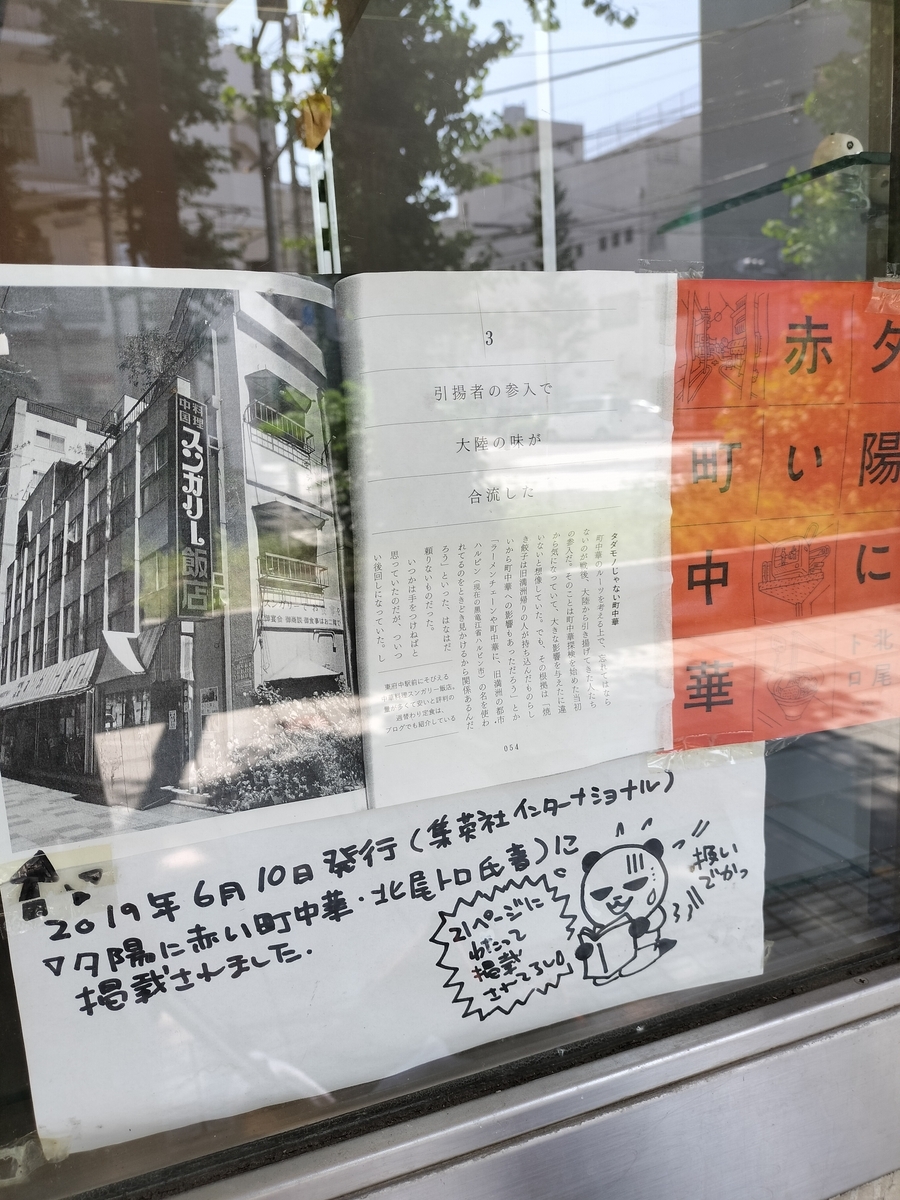 中国料理
スンガリー飯店
3
引揚者の参入で
大陸の味が
合流した
タダモノじゃない町中華
町中華のルーツを考える上で、忘れてはなら
ないのが戦後、大陸から引き揚げてきた人たち
の参入だ。そのことは町中華探検を始めた当初
から気になっていて、大きな影響を与えたに違
いないと想像していた。でも、その根拠は「焼
き餃子は旧満洲帰りの人が持ち込んだものらし
いから町中華への影響もあっただろう」とか
「ラーメンチェーンや町中華に、旧満洲の都市
ハルビン（現在の黒竜江省ハルビン市）の名を使わ
れてるのをときどき見かけるから関係あるんだ
ろう」といった、はなはだ
頼りないものだった。
いつかは手をつけねばと
思っていたのだが、ついつ
い後回しになっていた。し
東府中駅前にそびえる
中国料理スンガリー飯店。
量が多くて安いと評判の
週替わり定食は、
ブログでも紹介している
054
夕陽に
赤い
町中華
北尾
トロ
2019年6月10日発行(集英社インターナショナル)
▽夕陽に赤い町中華・北尾トロ氏著)に
掲載されました.
21ページに
わたって
掲載
されてるし。
扱い
でかっ